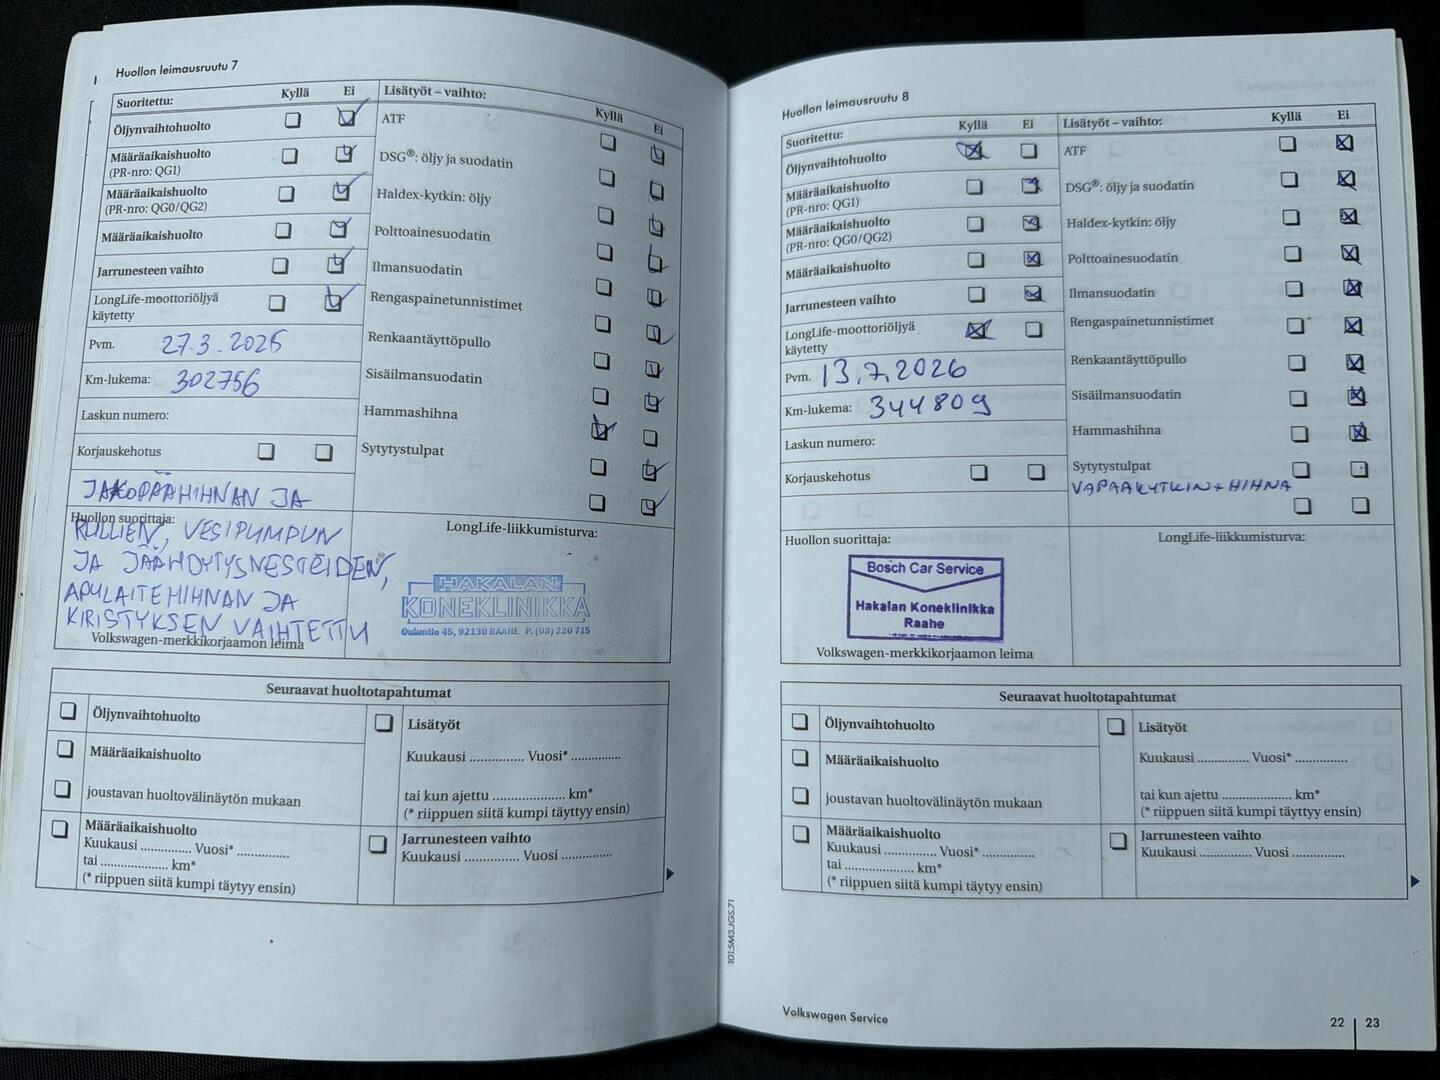 Huollon leimausruutu 7
Suoritettu: Kyllä Ei
Öljynvaihtohuolto
Määräaikaishuolto
(PR-nro: QG1)
Määräaikaishuolto
(PR-nro: QG0/QG2)
Määräaikaishuolto
Jarrunesteen vaihto
LongLife-moottoriöljyä
käytetty
Pvm. 27.3.2025
Km-lukema: 302756
Laskun numero:
Korjauskehotus
JAKOPÄÄHIHNAN JA
Huollon suorittaja:
RULLIEN, VESIPUMPUN
JA JÄÄHDYTYSNESTEIDEN,
APULAITEHIHNAN JA
KIRISTYKSEN VAIHTETTU
Volkswagen-merkkikorjaamon leima
Lisätyöt – vaihto: Kyllä Ei
ATF
DSG®: öljy ja suodatin
Haldex-kytkin: öljy
Polttoainesuodatin
Ilmansuodatin
Rengaspainetunnistimet
Renkaantäyttöpullo
Sisäilmansuodatin
Hammashihna
Sytytystulpat
LongLife-liikkumisturva:
HAKALAN
KONEKLINIKKA
45, 92130 RAAHE P. (08) 220 715
Seuraavat huoltotapahtumat
Öljynvaihtohuolto
Määräaikaishuolto
joustavan huoltovälinäytön mukaan
Määräaikaishuolto
Kuukausi .............. Vuosi* ..............
tai .................... km*
(* riippuen siitä kumpi täytyy ensin)
Lisätyöt
Kuukausi ............... Vuosi* .............
tai kun ajettu .................... km*
(* riippuen siitä kumpi täyttyy ensin)
Jarrunesteen vaihto
Kuukausi .............. Vuosi ..............
Huollon leimausruutu 8
Suoritettu: Kyllä Ei
Öljynvaihtohuolto
Määräaikaishuolto
(PR-nro: QG1)
Määräaikaishuolto
(PR-nro: QG0/QG2)
Määräaikaishuolto
Jarrunesteen vaihto
LongLife-moottoriöljyä
käytetty
Pvm. 13.7.2026
Km-lukema: 344809
Laskun numero:
Korjauskehotus
Huollon suorittaja:
Bosch Car Service
Hakalan Koneklinikka
Raahe
Volkswagen-merkkikorjaamon leima
Lisätyöt – vaihto: Kyllä Ei
ATF
DSG®: öljy ja suodatin
Haldex-kytkin: öljy
Polttoainesuodatin
Ilmansuodatin
Rengaspainetunnistimet
Renkaantäyttöpullo
Sisäilmansuodatin
Hammashihna
Sytytystulpat
VAPAAKYTKIN + HIHNA
LongLife-liikkumisturva:
Seuraavat huoltotapahtumat
Öljynvaihtohuolto
Määräaikaishuolto
joustavan huoltovälinäytön mukaan
Määräaikaishuolto
Kuukausi .............. Vuosi* ..............
tai .................... km*
(* riippuen siitä kumpi täytyy ensin)
Lisätyöt
Kuukausi .............. Vuosi* ..............
tai kun ajettu .................... km*
(* riippuen siitä kumpi täyttyy ensin)
Jarrunesteen vaihto
Kuukausi .............. Vuosi ..............
101.5M3.JGS.71
Volkswagen Service
22 | 23